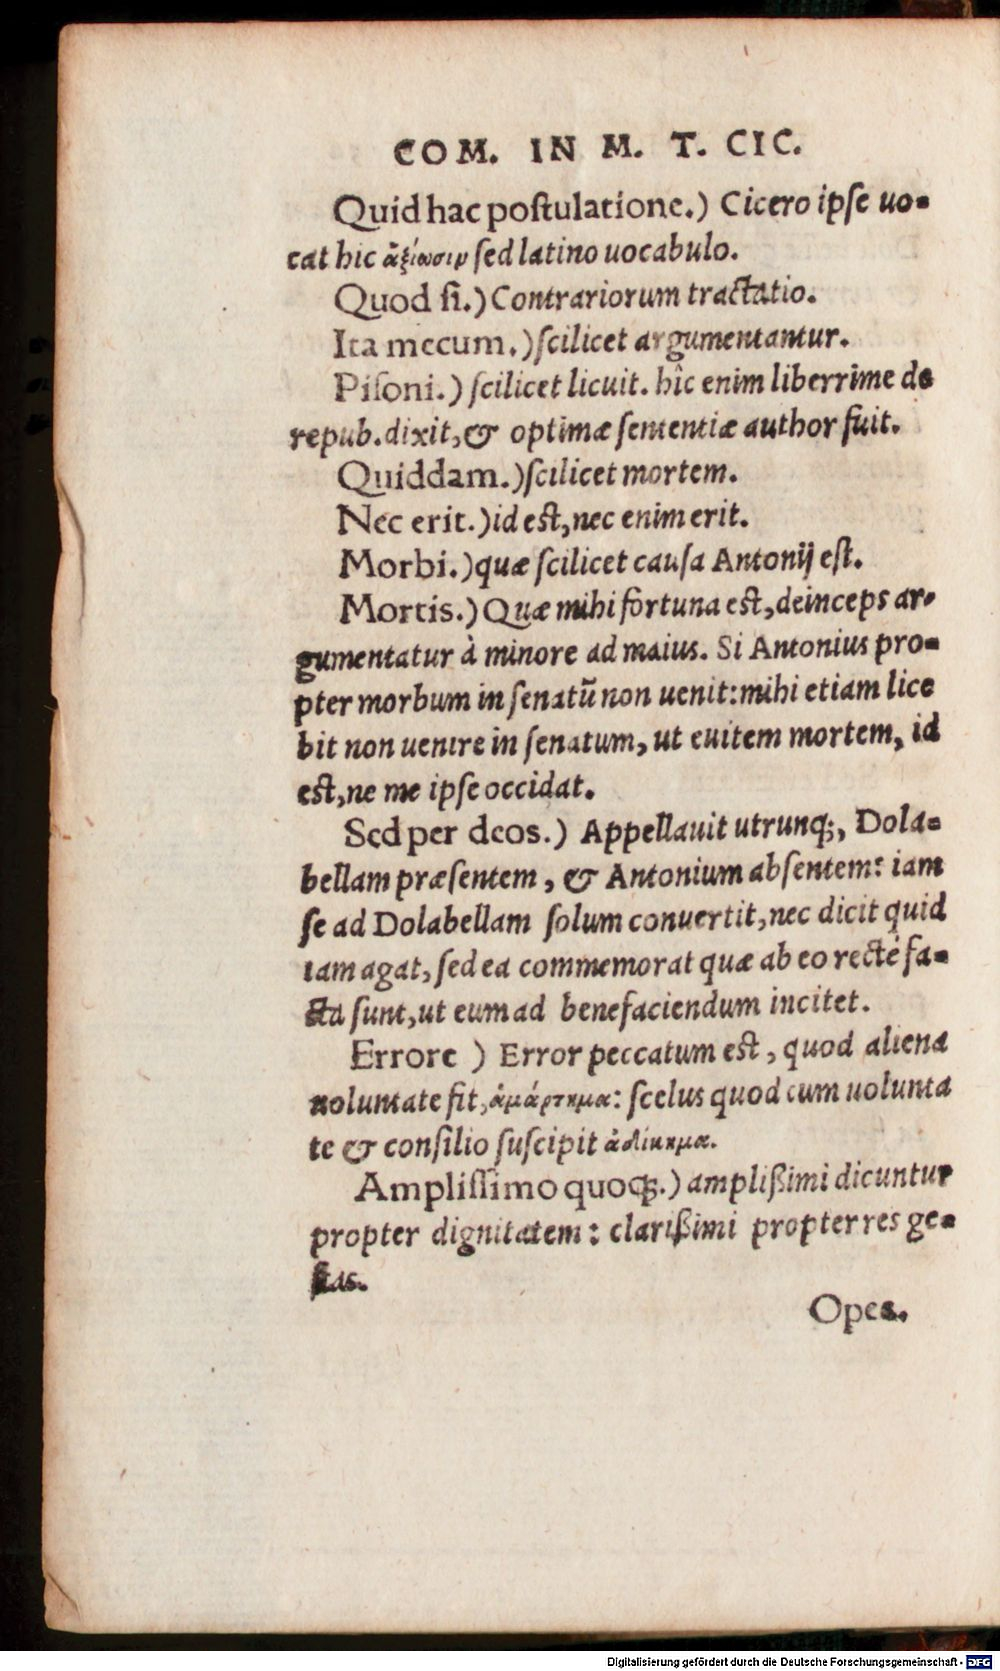 COM. IN M. T. CIC.
Quid hac poſtulatione.) Cicero ipſe uo-
cat hic ἀξίωσιν ſed latino uocabulo.
Quod ſi.) Contrariorum tractatio.
Ita mecum.) ſcilicet argumentantur.
Piſoni.) ſcilicet licuit. hîc enim liberrime de
repub. dixit, & optimæ ſententiæ author fuit.
Quiddam.) ſcilicet mortem.
Nec erit.) id eſt, nec enim erit.
Morbi.) quæ ſcilicet cauſa Antonij eſt.
Mortis.) Quæ mihi fortuna eſt, deinceps ar-
gumentatur à minore ad maius. Si Antonius pro-
pter morbum in ſenatũ non uenit: mihi etiam lice
bit non uenire in ſenatum, ut euitem mortem, id
eſt, ne me ipſe occidat.
Sed per deos.) Appellauit utrunq;, Dola-
bellam præſentem, & Antonium abſentem: iam
ſe ad Dolabellam ſolum conuertit, nec dicit quid
iam agat, ſed ea commemorat quæ ab eo rectè fa-
cta ſunt, ut eum ad benefaciendum incitet.
Errore ) Error peccatum eſt, quod aliena
uoluntate fit, ἁμάρτημα: ſcelus quod cum uolunta
te & conſilio ſuſcipit ἀδίκημα.
Ampliſſimo quoq;.) amplißimi dicuntur
propter dignitatem: clarißimi propter res ge-
ſtas.
Opes.
Digitalisierung gefördert durch die Deutsche Forschungsgemeinschaft - DFG